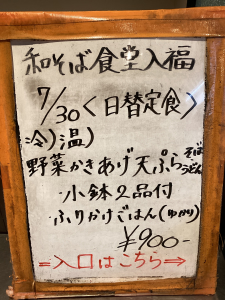 和そば食堂入福
7/30〈日替定食〉
冷)温)
野菜かきあげ天ぷらそばうどん
・小鉢2品付
・ふりかけごはん(ゆかり)
¥900-
⇒入口はこちら⇒